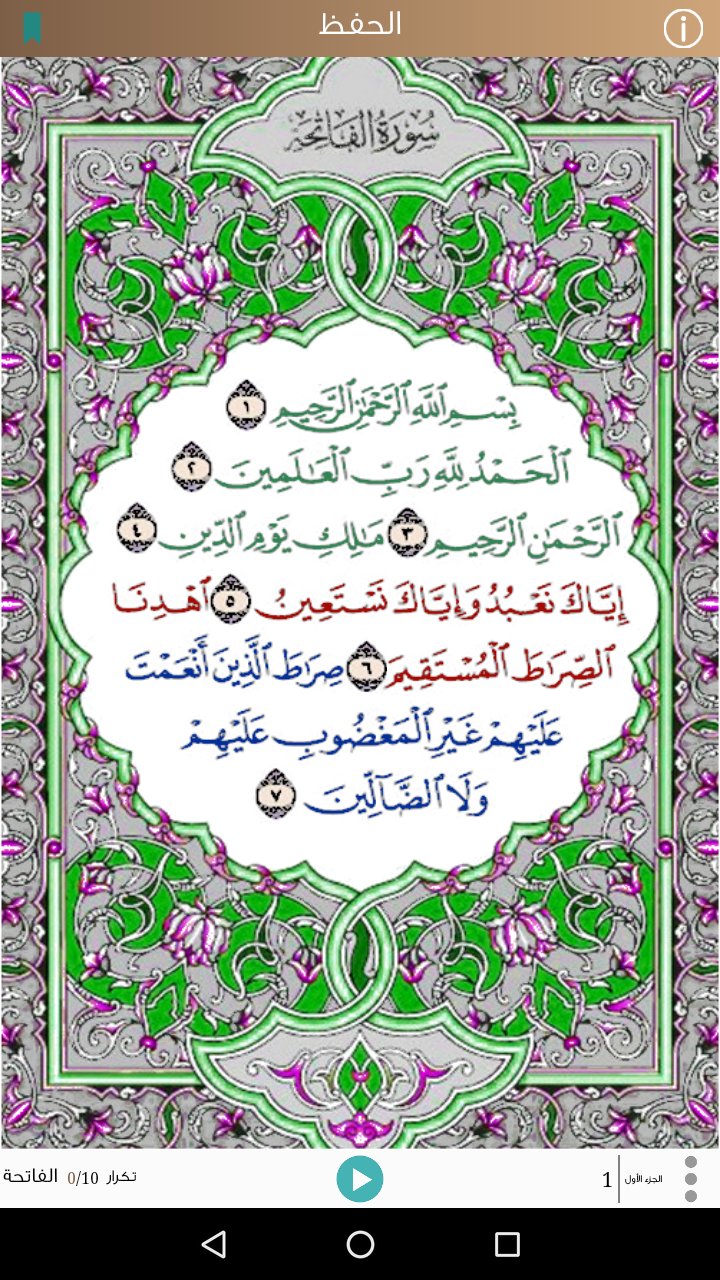 الحفظ
سُورَةُ الفَاتِحَة
بِسْمِ ٱللَّهِ ٱلرَّحْمَٰنِ ٱلرَّحِيمِ ١
ٱلْحَمْدُ لِلَّهِ رَبِّ ٱلْعَٰلَمِينَ ٢
ٱلرَّحْمَٰنِ ٱلرَّحِيمِ ٣ مَٰلِكِ يَوْمِ ٱلدِّينِ ٤
إِيَّاكَ نَعْبُدُ وَإِيَّاكَ نَسْتَعِينُ ٥ ٱهْدِنَا
ٱلصِّرَٰطَ ٱلْمُسْتَقِيمَ ٦ صِرَٰطَ ٱلَّذِينَ أَنْعَمْتَ
عَلَيْهِمْ غَيْرِ ٱلْمَغْضُوبِ عَلَيْهِمْ
وَلَا ٱلضَّآلِّينَ ٧
الجزء الأول 1 تكرار 0/10 الفاتحة